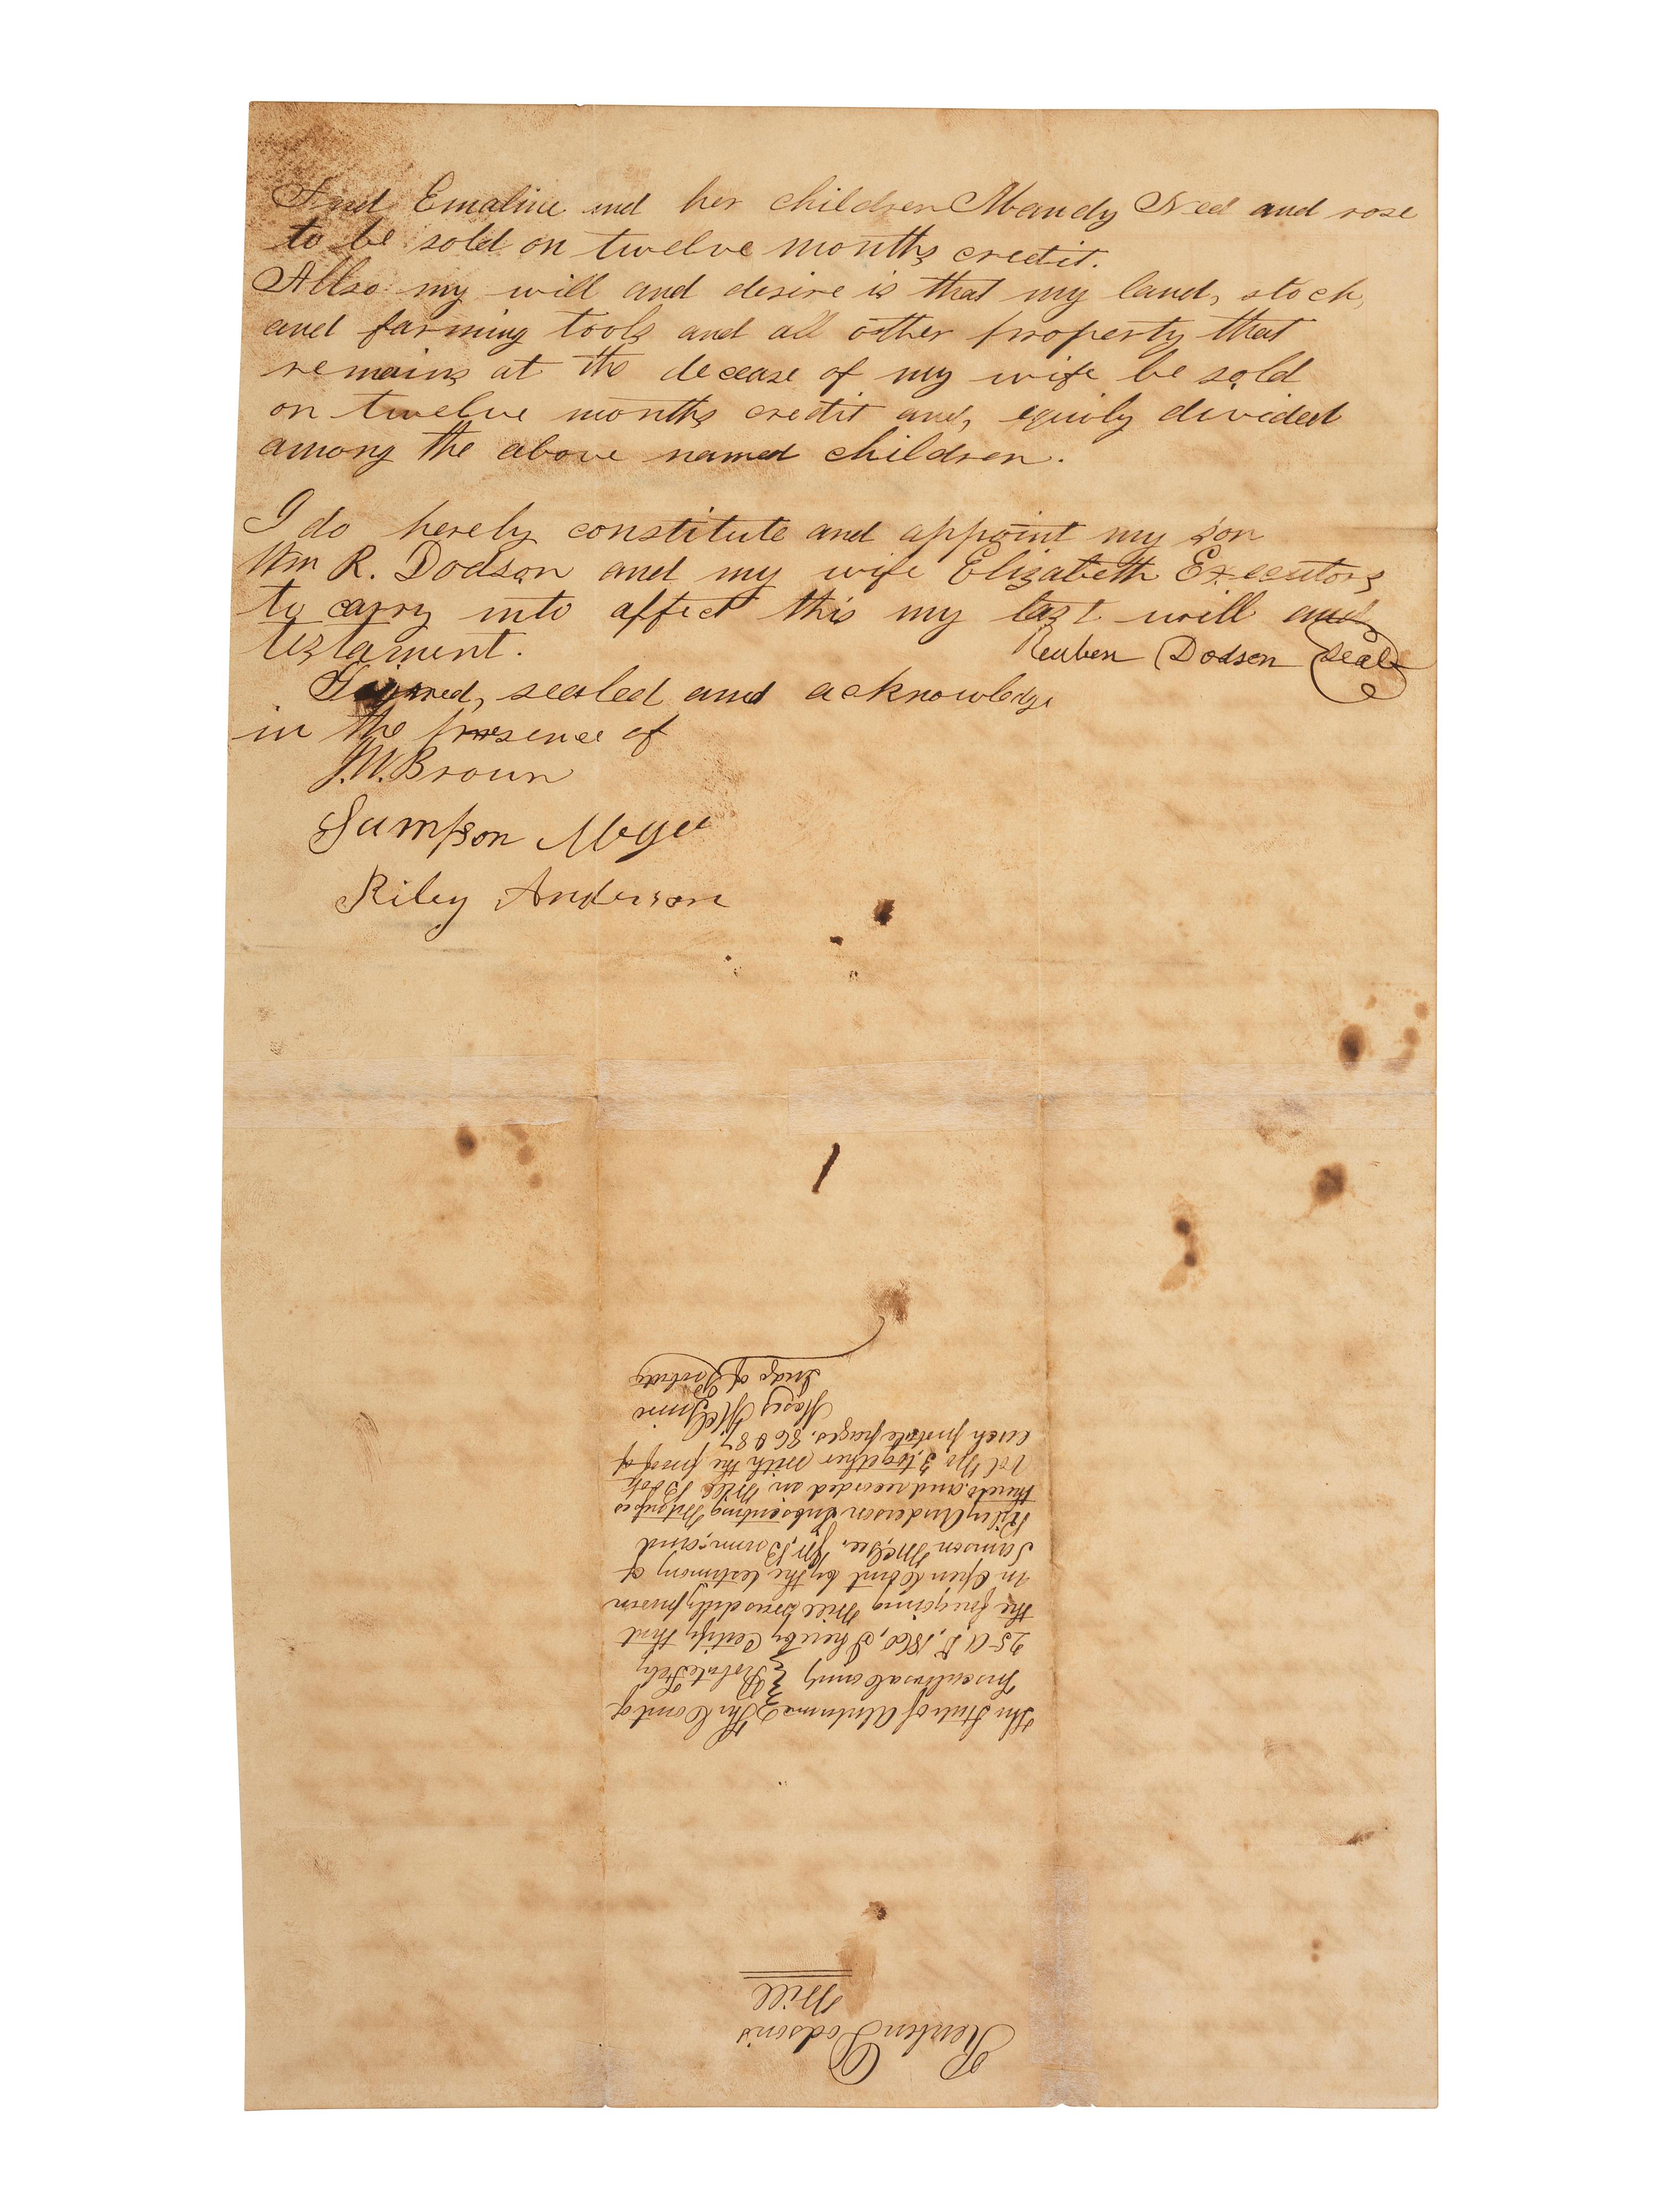 And Emaline and her children Mandy Ned and rose
to be sold on twelve months credit.
Allso my will and desire is that my land, stock,
and farming tools and all other property that
remains at the decease of my wife be sold
on twelve months credit and, equily divided
among the above named children.
I do hereby constitute and appoint my son
Wm R. Dodson and my wife Elizabeth Executors
to carry into affect this my last will and
testament.
Reuben Dodson Seal
Signed, sealed and acknowledge
in the presence of
J.W. Brown
Sampson Mcgee
Riley Anderson
The State of Alabama The Court of
Tuscaloosa County Probate Feby
25 A.D. 1860, I hereby Certify that
the foregoing Will was duly proven
in Open Court by the testimony of
Samson McGee, J W, Brown, and
Riley Anderson Subscribing Witnesses
thereto, and recorded in Will Book
Vol No 3, together with the proof of
each probate pages, 86 & 87
Judge of Probate
Reuben Dodson's
Will